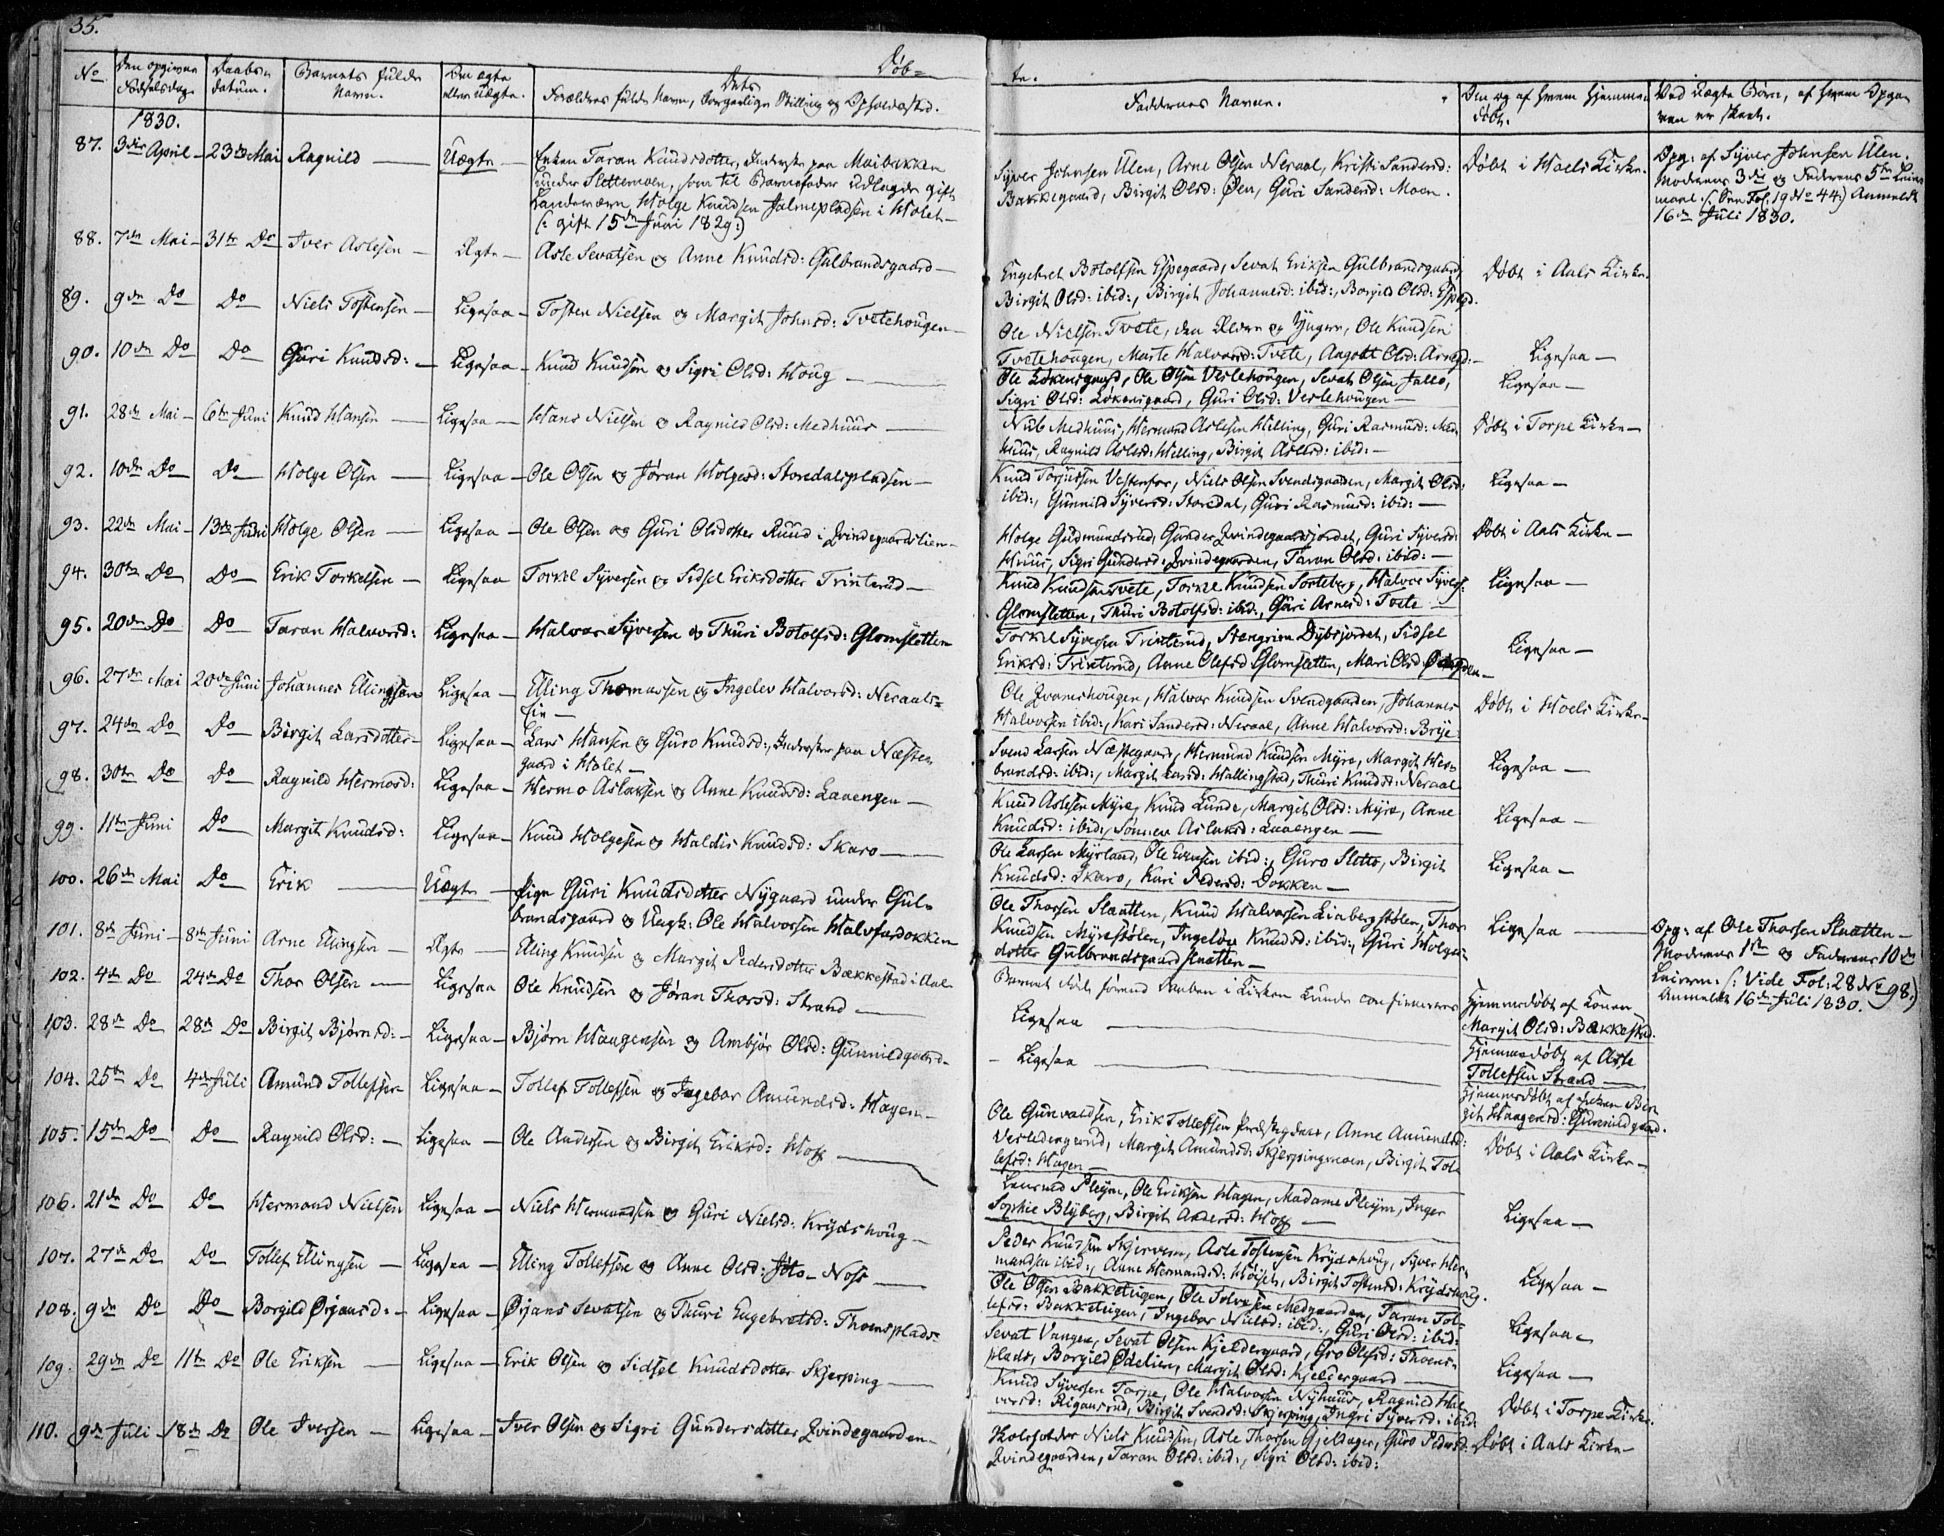 35.
Døb=
te.
No
Den opgivne Fødselsdag.
Daabens datum.
Barnets fulde Navn.
Om ægte eller Uægte.
Dets
Forældres fulde Navn, borgerlige Stilling og Opholdssted.
Faddernes Navne.
Om og af hvem hjemme-
døbt.
Ved Uægte Børn, af hvem Opgi-
ven er skeet.
1830.
87. 3die April 23de Mai Ragnild Uægte Enken Taran Knudsdotter, Inderste paa Maibakken
under Slettemoen, som til Barnefader udlagde gift
Landeværn, Holge Knudsen Jalmepladsen i Holet
(: gift 15de Juni 1829:)
Syver Johnsen Ulen, Arne Olsen Neraal, Kristi Sandersd:
Bakkegaard, Birgit Olsd: Øen, Guri Sandersd: Moen.
Døbt i Hoels Kirke.
Opg: af Syver Johnsen Ulen.
Moderens 3die og Faderens 5te Leier-
maal (: See Fol. 19 No 44:) Anmeldt
16de Juli 1830.
88. 7de Mai 31te Do Iver Aslesen Ægte Asle Sevatsen og Anne Knudsd: Gulbrandsgaard
Engebret Botolfsen Espegaard, Sevat Eriksen Gulbrandsgaard,
Birgit Olsd: ibid:, Birgit Johannesd: ibid:, Borgild Olsd: Espegd.
Døbt i Aals Kirke.
89. 9de Do Do Niels Tostensen Ligesaa Tosten Nielsen og Margit Johnsd: Tvetehougen
Ole Nielsen Tvete, den Ældre og Yngre, Ole Knudsen
Tvetehougen, Marte Halvorsd: Tvete, Aagodt Olsd: Arnegd:
Ligesaa
90. 10de Do Do Guri Knudsd: Ligesaa Knud Knudsen og Sigri Olsd: Houg
Ole Løkensgaard, Ole Olsen Veslehougen, Sevat Olsen Jallo,
Sigri Olsd: Løkensgaard, Guri Olsd: Veslehougen
Ligesaa
91. 28de Mai 6te Juni Knud Hansen Ligesaa Hans Nielsen og Ragnild Olsd: Medhuus
Nub Medhuus, Hermand Aslesen Helling, Guri Rasmusd: Med-
huus, Ragnild Aslesd: Helling, Birgit Aslesd: ibid:
Døbt i Torpe Kirke
92. 10de Do Do Holge Olsen Ligesaa Ole Olsen og Jøran Holgesd: Storedalspladsen
Knud Torjusen Vestenfor, Niels Olsen Svendsgaarden, Margit Olsd:
ibid:, Gunnild Syversd: Storedal, Guri Rasmusd: ibid:
Ligesaa
93. 22de Mai 13de Juni Holge Olsen Ligesaa Ole Olsen og Guri Olsdotter Ruud i Qvindegaardslien
Holge Gudmundsrud, Gunder Qvindegaardsjordet, Guri Syversd:
Huus, Sigri Gundersd: Qvindegaarden, Taran Olsd: ibid:
Døbt i Aals Kirke
94. 30te Do Do Erik Torkelsen Ligesaa Torkel Syversen og Sidsel Eriksdotter Trinterud
Knud Knudsen Tvete, Torkel Knudsen Sorteberg, Halvor Syvers:
Glomsletten, Thuri Botolfsd: ibid:, Guri Arnesd: Tvete
Ligesaa
95. 20de Do Do Taran Halvorsd: Ligesaa Halvor Syversen og Thuri Botolfsd: Glomsletten
Torkel Syversen Trinterud, Steengrim Dybsjordet, Sidsel
Eriksd: Trinterud, Anne Olefsd Glomsletten, Mari Olsd
Ligesaa
96. 27de Mai 20de Juni Johannes Ellingsen Ligesaa Elling Thomassen og Ingelev Halvorsd: Neraals-
Eie
Ole Qvamshougen, Halvor Knudsen Svendgaarden, Johannes
Halvorsen ibid:, Kari Sandersd: Neraal, Anne Halvorsd: Brye
Døbt i Hoels Kirke
97. 24de Do Do Birgit Larsdotter Ligesaa Lars Hansen og Guro Knudsd:, Inderster paa Næste-
gaard i Holet
Svend Larsen Næstegaard, Hermund Knudsen Myre, Margit Her-
brandsd: ibid:, Margit Larsd: Hallingstad, Thuri Knudsd: Neraal
Ligesaa
98. 30te Do Do Ragnild Hermosd: Ligesaa Hermo Aslaksen og Anne Knudsd: Laaengen
Knud Aslesen Myre, Knud Lunde, Margit Olsd: Myre, Anne
Knudsd: ibid:, Sønnev Aslaksd: Laaengen
Ligesaa
99. 11te Juni Do Margit Knudsd: Ligesaa Knud Holgesen og Haldis Knudsd: Skaro
Ole Larsen Myrland, Ole Evensen ibid:, Guro Sletto, Birgit
Knudsd: Skaro, Kari Pedersd: Dokken
Ligesaa
100. 26de Mai Do Erik Uægte Pige Guri Knudsdotter Nygaard under Gul-
brandsgaard og Ungk: Ole Halvorsen Halvfardokken
Ole Thorsen Slaatten, Knud Halvorsen Liabergstølen, Thor
Knudsen Myrestølen, Ingeløv Knudsd: ibid:, Guri Holges-
dotter Gulbrandsgaardslaatten
Ligesaa
Opg: af Ole Thorsen Slaatten
Moderens 1ste og Faderens 10de
Leierm: (: Vide Fol: 28 No 98:)
Anmeldt 16de Juli 1830.
101. 8de Juni 8de Juni Arne Ellingsen Ægte Elling Knudsen og Margit Pedersdotter Bækkestad i Aal
Barnet døde førend Daaben i Kirken kunde confirmeres
Hjemmedøbt af Konen
Margit Olsd: Bækkestad.
102. 4de Do 24de Do Thor Olsen Ligesaa Ole Knudsen og Jøran Thorsd: Strand
Ligesaa
Hjemmedøbt af Asle
Tollefsen Strand
103. 28de Do 28de Do Birgit Bjørnsd: Ligesaa Bjørn Haagensen og Ambjør Olsd: Gunnildgaard
Ligesaa
Hjemmedøbt af Enken Bir-
git Haagensd: Gunnildgaard.
104. 25de Do 4de Juli Amund Tollefsen Ligesaa Tollef Tollefsen og Ingebor Amundsd: Hagen
Ole Gunvaldsen, Erik Tollefsen Prestegaard, Anne Amundsd:
Vesledengerud, Margit Amundsd: Skjerpingmoen, Birgit Tol-
lefsd: Hagen
Døbt i Aals Kirke
105. 15de Do Do Ragnild Olsd: Ligesaa Ole Andersen og Birgit Eriksd: Hoff
Lensmd Pleym, Ole Eriksen Hagen, Madame Pleym, Inger
Sophie Blyberg, Birgit Andersd: Hoff
Ligesaa
106. 21de Do Do Hermand Nielsen Ligesaa Niels Hermandsen og Guri Nielsd: Krydshoug
Peder Knudsen Skjerven, Asle Tostensen Krydshoug, Syver Her-
mandsen ibid:, Anne Hermandsd: Høijet, Birgit Tostensd: Krydshoug.
Ligesaa
107. 27de Do Do Tollef Ellingsen Ligesaa Elling Tollefsen og Anne Olsd: Noss
Ole Olsen Bakketeigen, Ole Tolvsen Medgaarden, Taran Tol-
lefsd: Bakketeigen, Ingebor Nielsd: ibid:, Guri Olsd: ibid:
Ligesaa
108. 9de Do Do Borgild Ørjansd: Ligesaa Ørjans Sevatsen og Thuri Engebretsd: Thoensplads
Sevat Vangen, Sevat Olsen Kjeldergaard, Gro Olefsd: Thoens-
plads, Borgild Ødelien, Margit Olsd: Kjeldergaard
Ligesaa
109. 29de Do 11te Do Ole Eriksen Ligesaa Erik Olsen og Sidsel Knudsdotter Skjerping
Knud Syversen Torpe, Ole Halvorsen Nyhuus, Ragnild Hal-
vorsd: Rigansrud, Birgit Svendsd: Skjerping, Ingri Syversd: ibid:
Døbt i Torpe Kirke.
110. 9de Juli 18de Do Ole Iversen Ligesaa Iver Olsen og Sigri Gundersdotter Qvindegaarden
Skoleholder Niels Knudsen, Asle Thorsen Gjeldager, Guro Pedersd:
Qvindegaarden, Taran Olsd: ibid:, Sigri Olsd: ibid:
Døbt i Aals Kirke